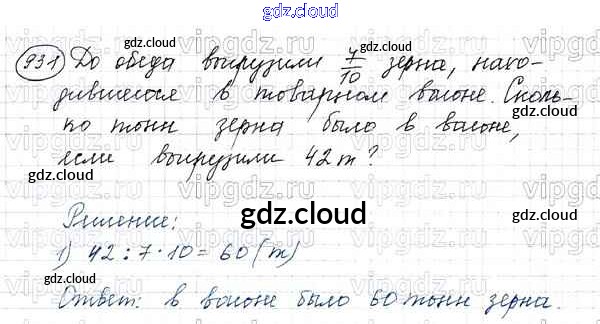 gdz.cloud
931 До обеда выгрузили 7/10 зерна, нахо-
дившегося в товарном вагоне. Сколь-
ко тонн зерна было в вагоне,
если выгрузили 42 т?
Решение:
1) 42 : 7 · 10 = 60 (т)
Ответ: в вагоне было 60 тонн зерна.
gdz.cloud
gdz.cloud
gdz.cloud
gdz.cloud
gdz.cloud
gdz.cloud
gdz.cloud
gdz.cloud
gdz.cloud
vipgdz
vipgdz
vipgdz